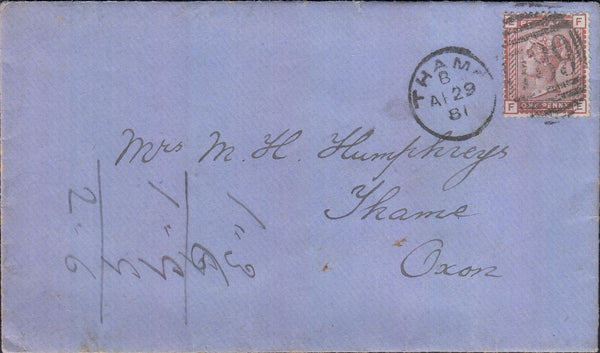 THAM
B
AP 29
81
F F
F ONE PENNY F
Mrs M. H. Humphreys
Thame
Oxon
1" 3
1"
2" 6